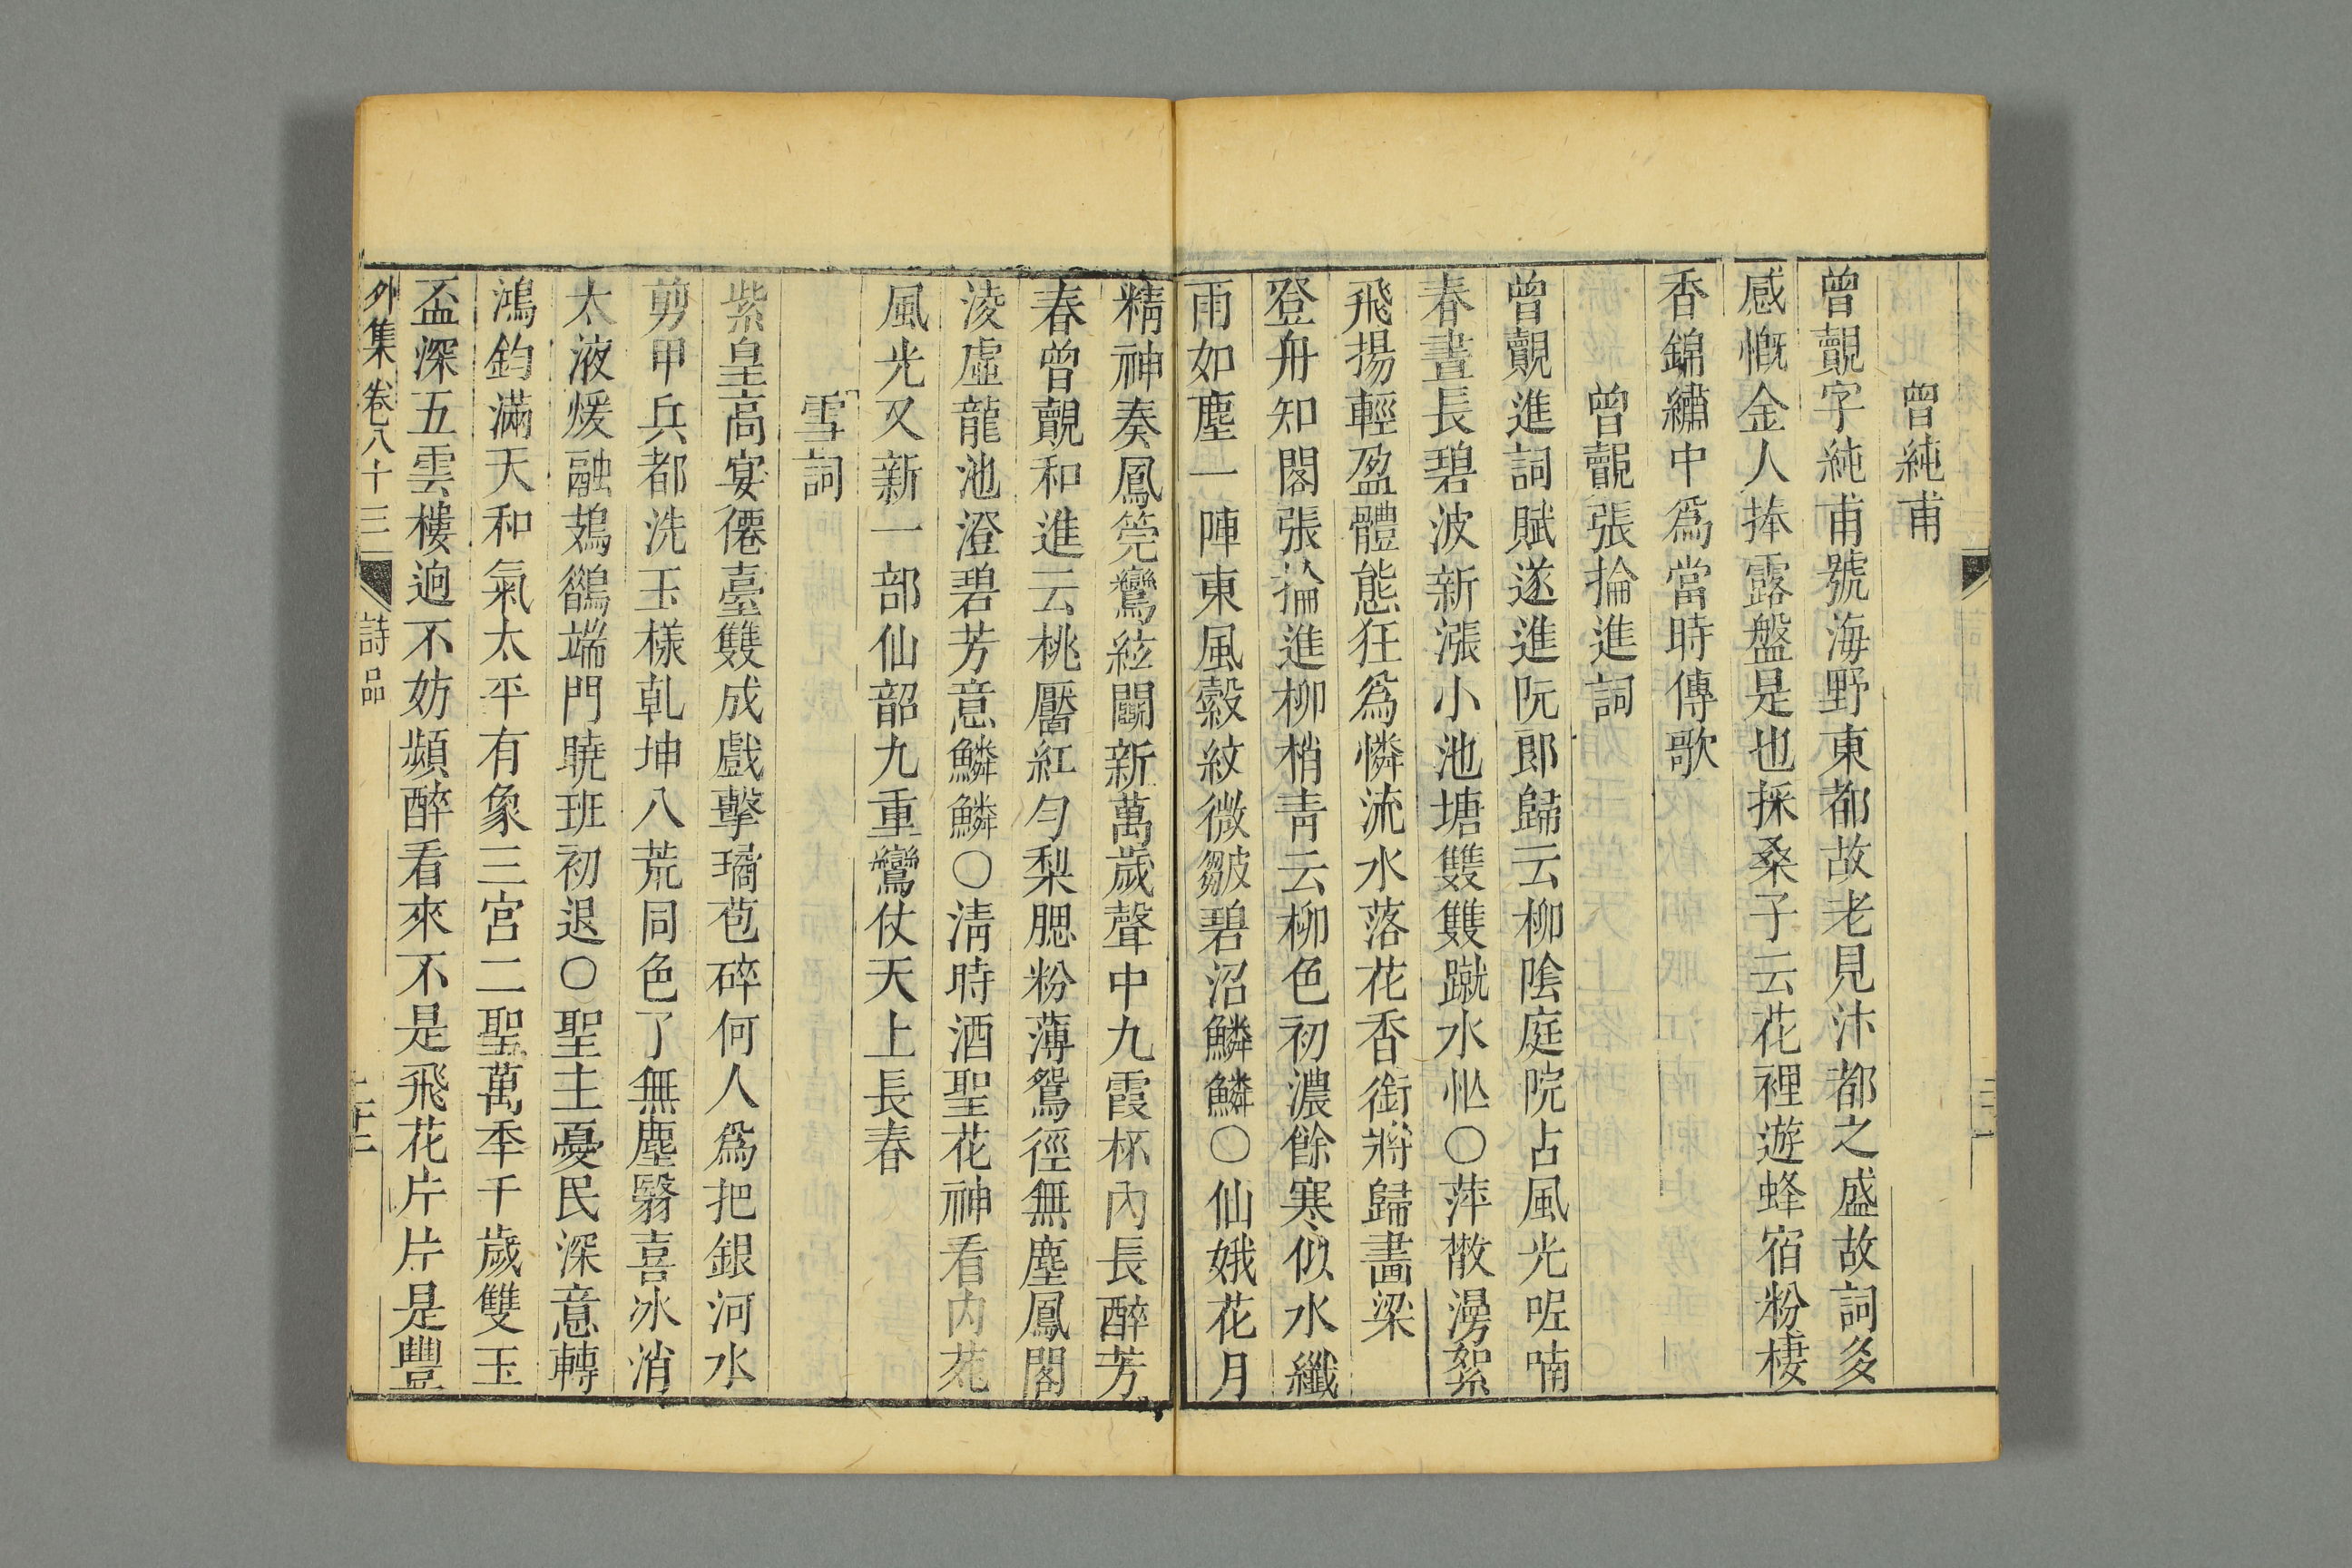 曾純甫
曾覿字純甫號海野東都故老見汴都之盛故詞多
感慨金人捧露盤是也採桑子云花裡遊蜂宿粉棲
香錦繡中爲當時傳歌
曾覿張掄進詞
曾覿進詞賦遂進阮郎歸云柳陰庭院占風光呢喃
春晝長碧波新漲小池塘雙雙蹴水忙〇萍散漫絮
飛揚輕盈體態狂爲憐流水落花香銜將歸畫梁
登舟知閣張掄進柳梢青云柳色初濃餘寒似水纖
雨如塵一陣東風縠紋微皺碧沼鱗鱗〇仙娥花月
精神奏鳳筦鸞絃鬭新萬歲聲中九霞杯內長醉芳
春曾覿和進云桃靨紅勻梨腮粉薄鴛徑無塵鳳閣
淩虛龍池澄碧芳意鱗鱗〇淸時酒聖花神看内苑
風光又新一部仙韶九重鸞仗天上長春
雪詞
紫皇高宴僊臺雙成戲擊璚苞碎何人爲把銀河水
剪甲兵都洗玉樣乹坤八荒同色了無塵翳喜冰消
太液煖融鳷鵲端門曉班初退〇聖主憂民深意轉
鴻鈞滿天和氣太平有象三宮二聖萬秊千歲雙玉
盃深五雲樓逈不妨頻醉看來不是飛花片片是豐
外集卷八十三
詩品